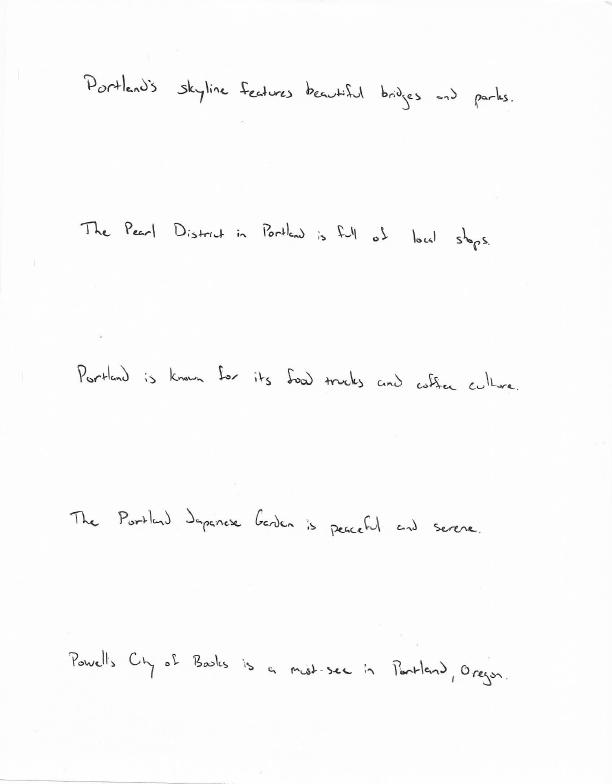 Portland's skyline features beautiful bridges and parks.
The Pearl District in Portland is full of local shops.
Portland is known for its food trucks and coffee culture.
The Portland Japanese Garden is peaceful and serene.
Powell's City of Books is a must-see in Portland, Oregon.